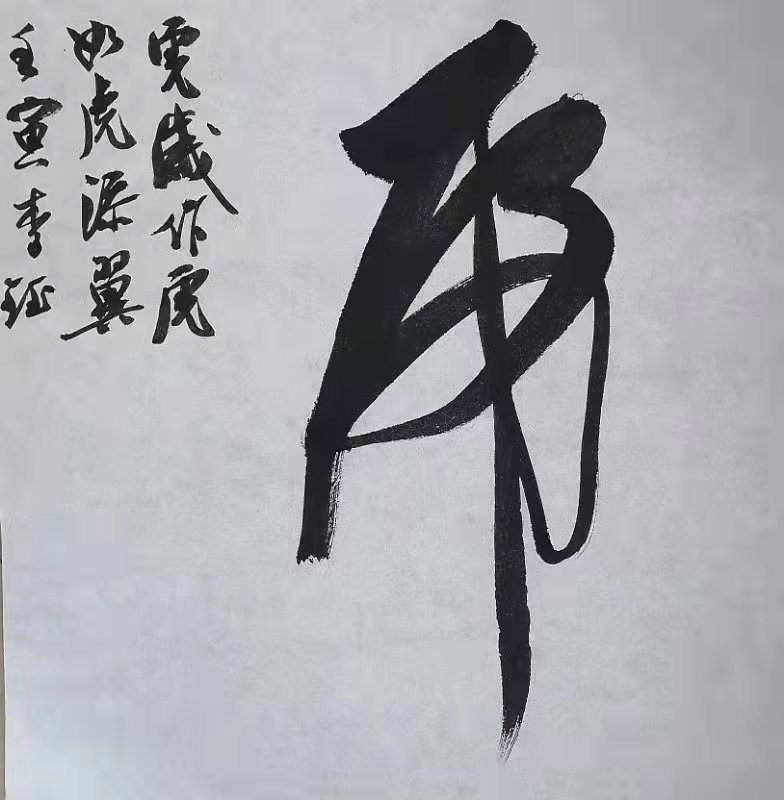 虎
虎歲作虎
如虎添翼
壬寅李钲